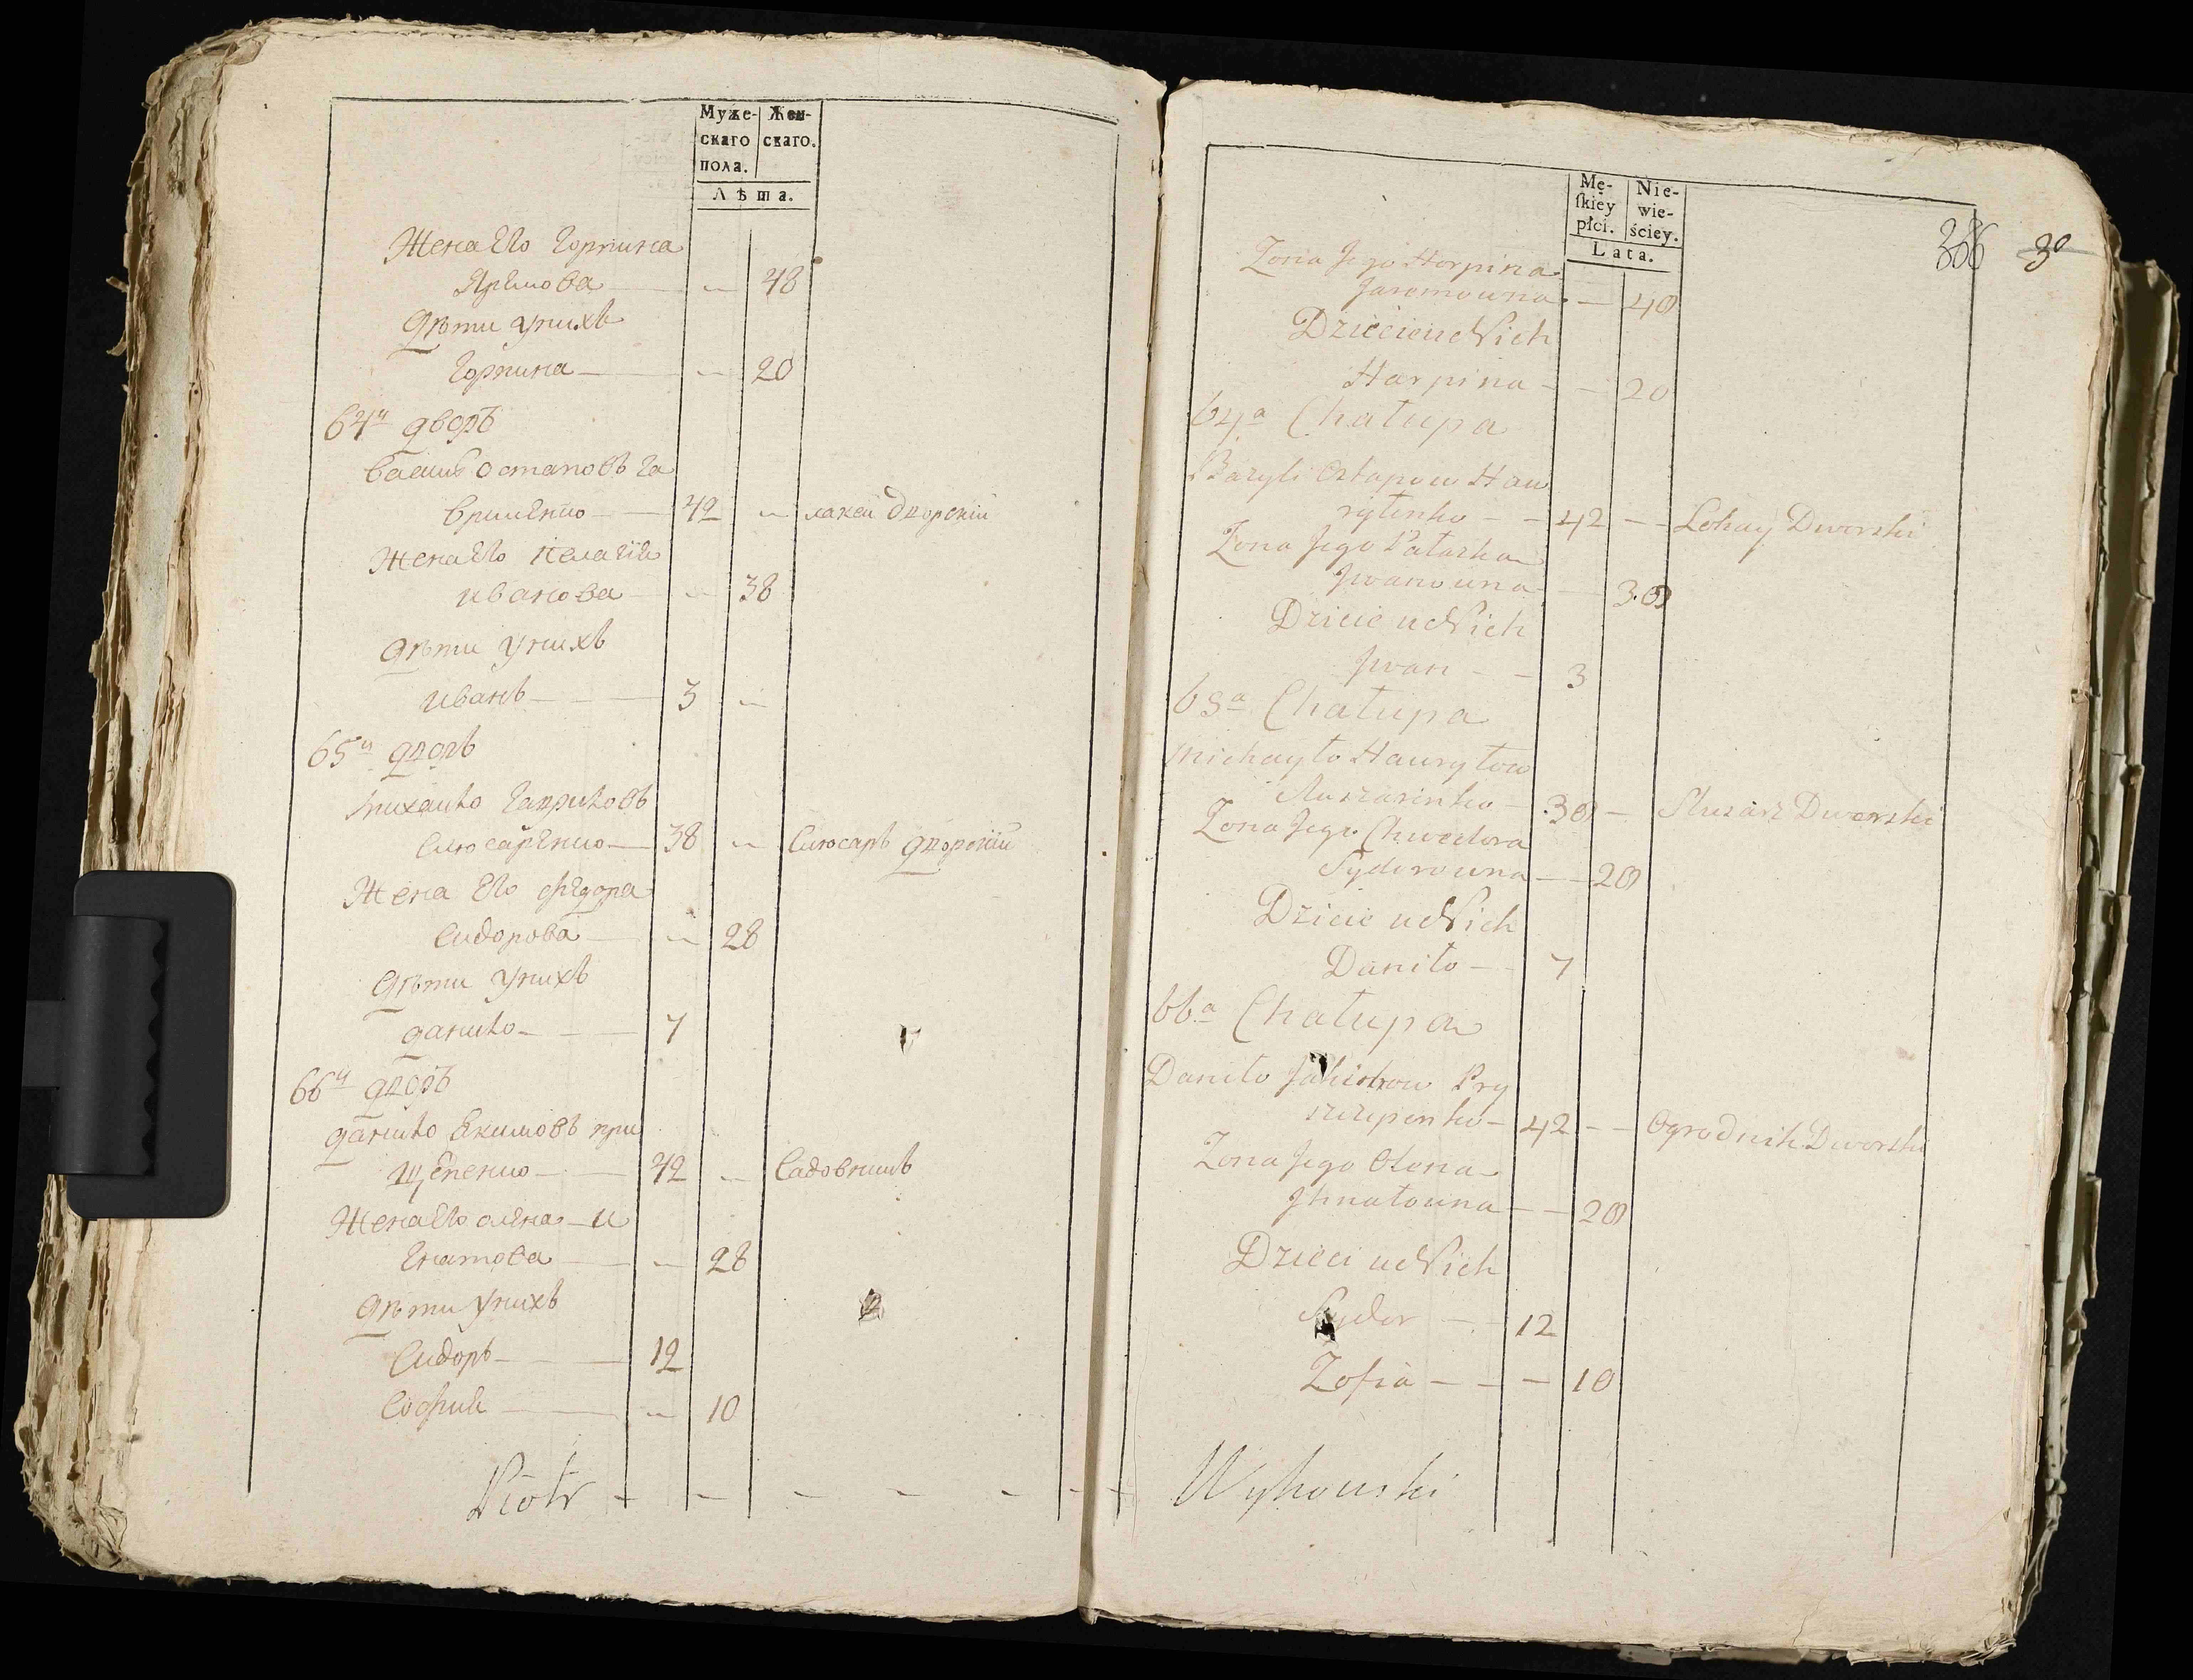 Муже-
скаго
пола.
Жен-
скаго.
Лѣта.
Жена Его Горпина
Яремова — — 48
Дѣти Унихъ
Горпина — — 20
64й дворъ
Василь Остаповъ Га
вриленко — 42 — лакей Дворскій
Жена Его Пелагія
Иванова — — 38
Дѣти Унихъ
Иванъ — 3 —
65й дворъ
Михайло Гавриловъ
Слюсаренко — 38 — Слюсаръ дворскій
Жена Его Федора
Сидорова — — 28
Дѣти Унихъ
данило — 7
66й дворъ
данило Екимовъ при
щепенко — 42 — Садовникъ
Жена Его олена — И
гнатова — — 28
Дѣти Унихъ
Сидоръ — 12
София — — 10
Piotr — — — — — —
Mę-
ſkiey
płci.
Nie-
wie-
ściey.
Lata.
386 30
Zona Jego Horpina
Jaremowna — 48
Dzieci u Nich
Harpina — — 20
64a Chałupa
Bazyli Ostapow Haw
ryłenko — — 42 — — Lokay Dworski
Zona Jego Pałazka
Jwanowna — — 38
Dziecie u Nich
Jwan — — 3
65a Chałupa
Michayło Hawryłow
Sluszarenko — 38 — Sluzarz Dworski
Zona Jego Chwedora
Sydorowna — — 28
Dziecie u Nich
Daniło — 7
66a Chałupa
Daniło Jakimow Pry
szczepenko — 42 — — Ogrodnik Dworski
Zona Jego Ołena
Jhnatowna — — 28
Dzieci u Nich
Sydor — — 12
Zofia — — — 10
Wyhowski